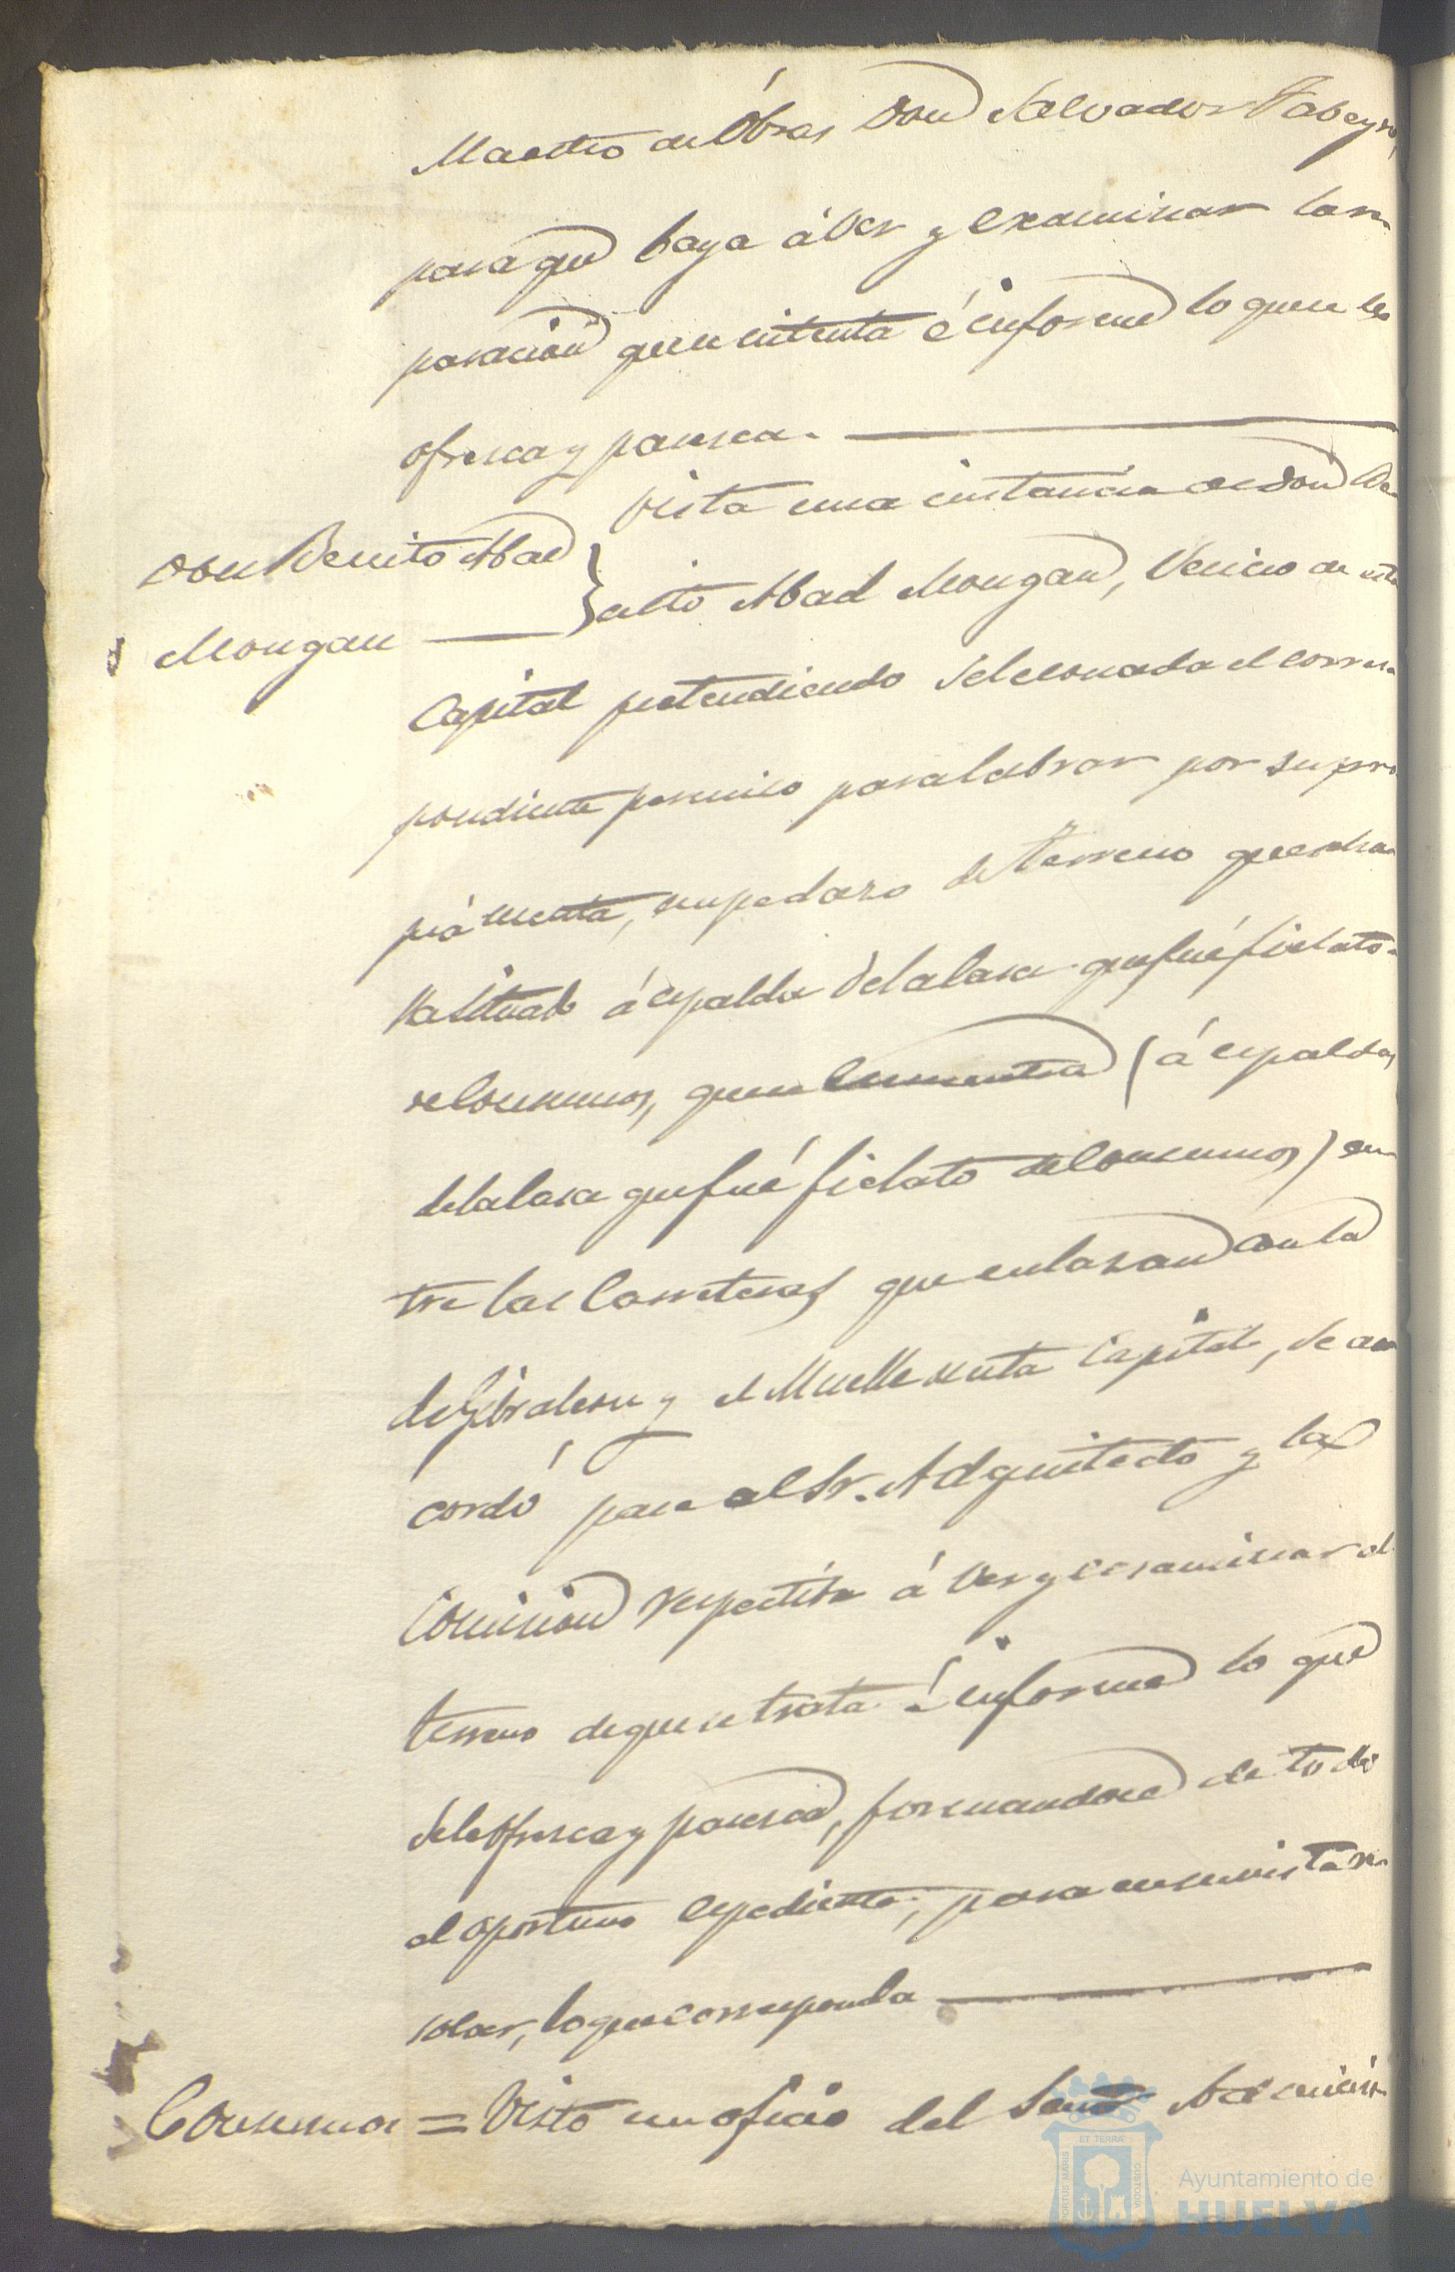 Maestro de Obras Don Salvador
para que baya á ver y examinar la re
paracion que se intenta é informe lo que se le
ofresca y paresca.
Vista una instancia de Don Be
Don Benito Abad
nito Abad Mongan, Vecino de esta
Mongan
Capital pretendiendo se le conceda el corres
pondiente permiso para labrar por su pro
piá cuenta, un pedazo de terreno que se ha
lla situado á espalda de la casa que fué fielato
de Consumos, que se encuentra (á espaldas
de la casa que fué fielato de Consumos) en
tre las Carreteras que enlasan con la
de Gibraleon y el Muelle de esta Capital, se a
cordó pase al Sr. Adquitecto y la
Comision respectiva á ver y examinar el
terreno de que se trata é informe lo que
se le ofresca y paresca, formandose de todo
el oportuno espediente, para en su vista re
solver, lo que corresponda
Consumos = Visto un oficio del Señor
Ayuntamiento de
HUELVA
PORTUS MARIS
ET TERRAE
CUSTODIA